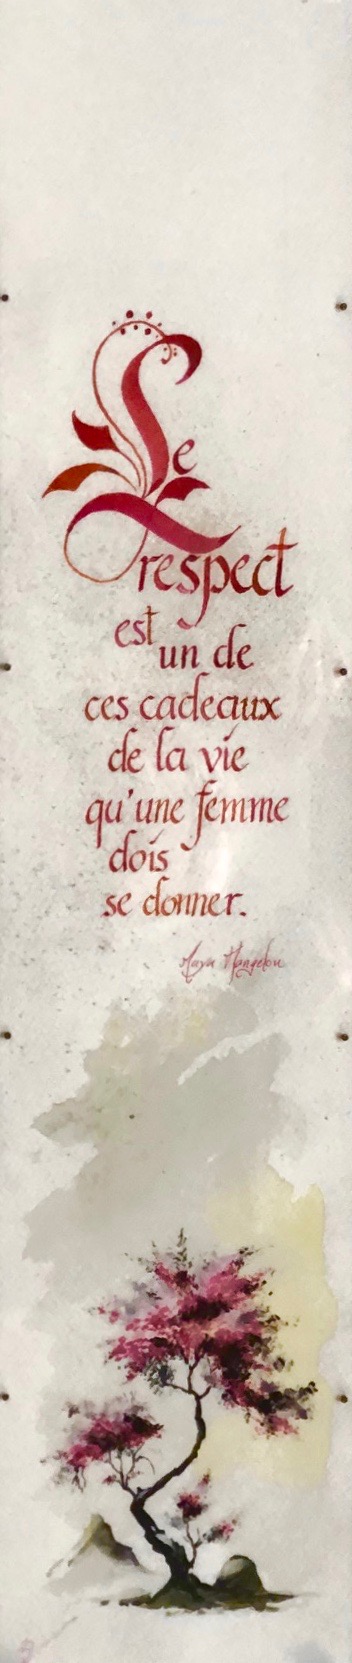 Le
respect
est
un de
ces cadeaux
de la vie
qu'une femme
dois
se donner.
Maya Mangelou